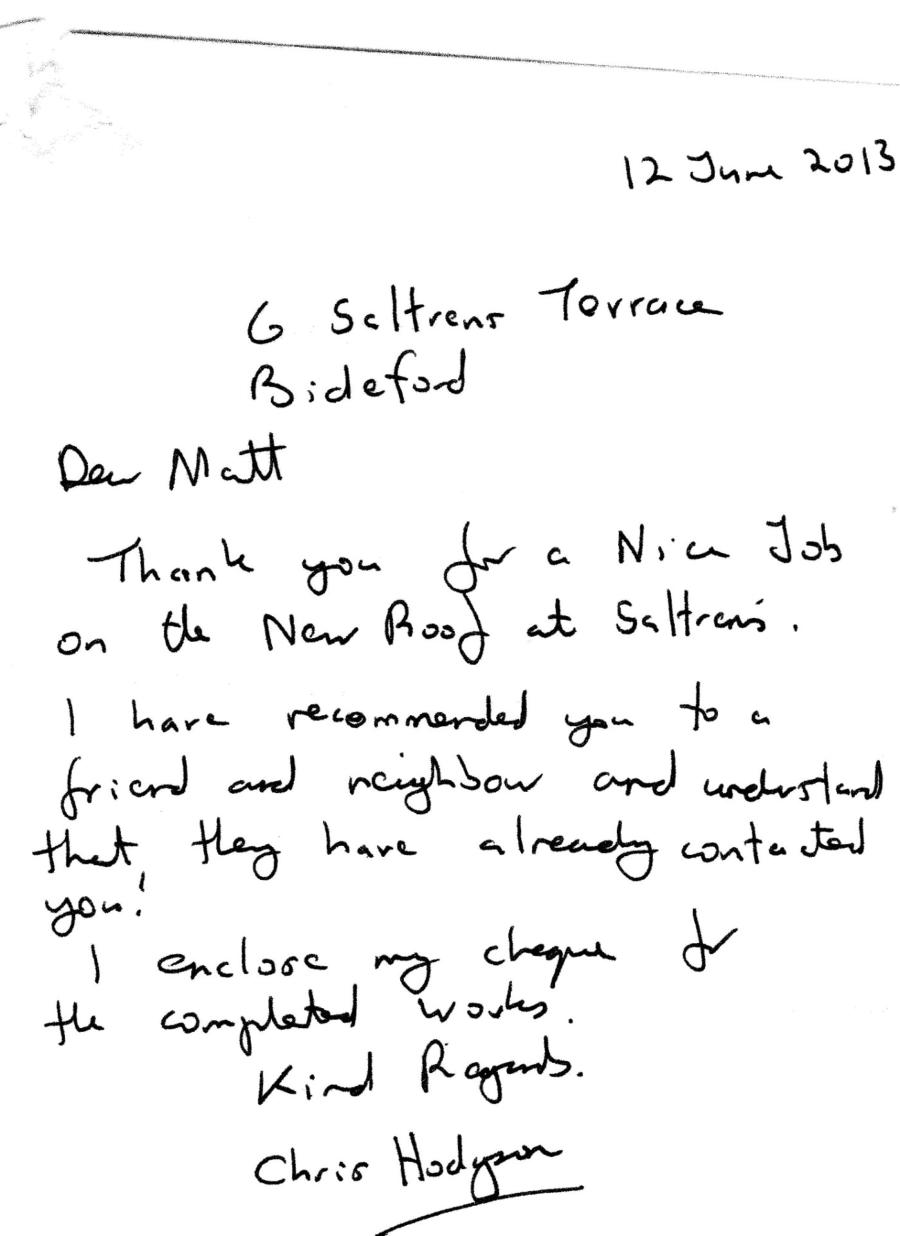 12 June 2013
6 Saltrens Terrace
Bideford
Dear Matt
Thank you for a Nice Job
on the New Roof at Saltrens.
I have recommended you to a
friend and neighbour and understand
that they have already contacted
you!
I enclose my cheque for
the completed works.
Kind Regards.
Chris Hodgson